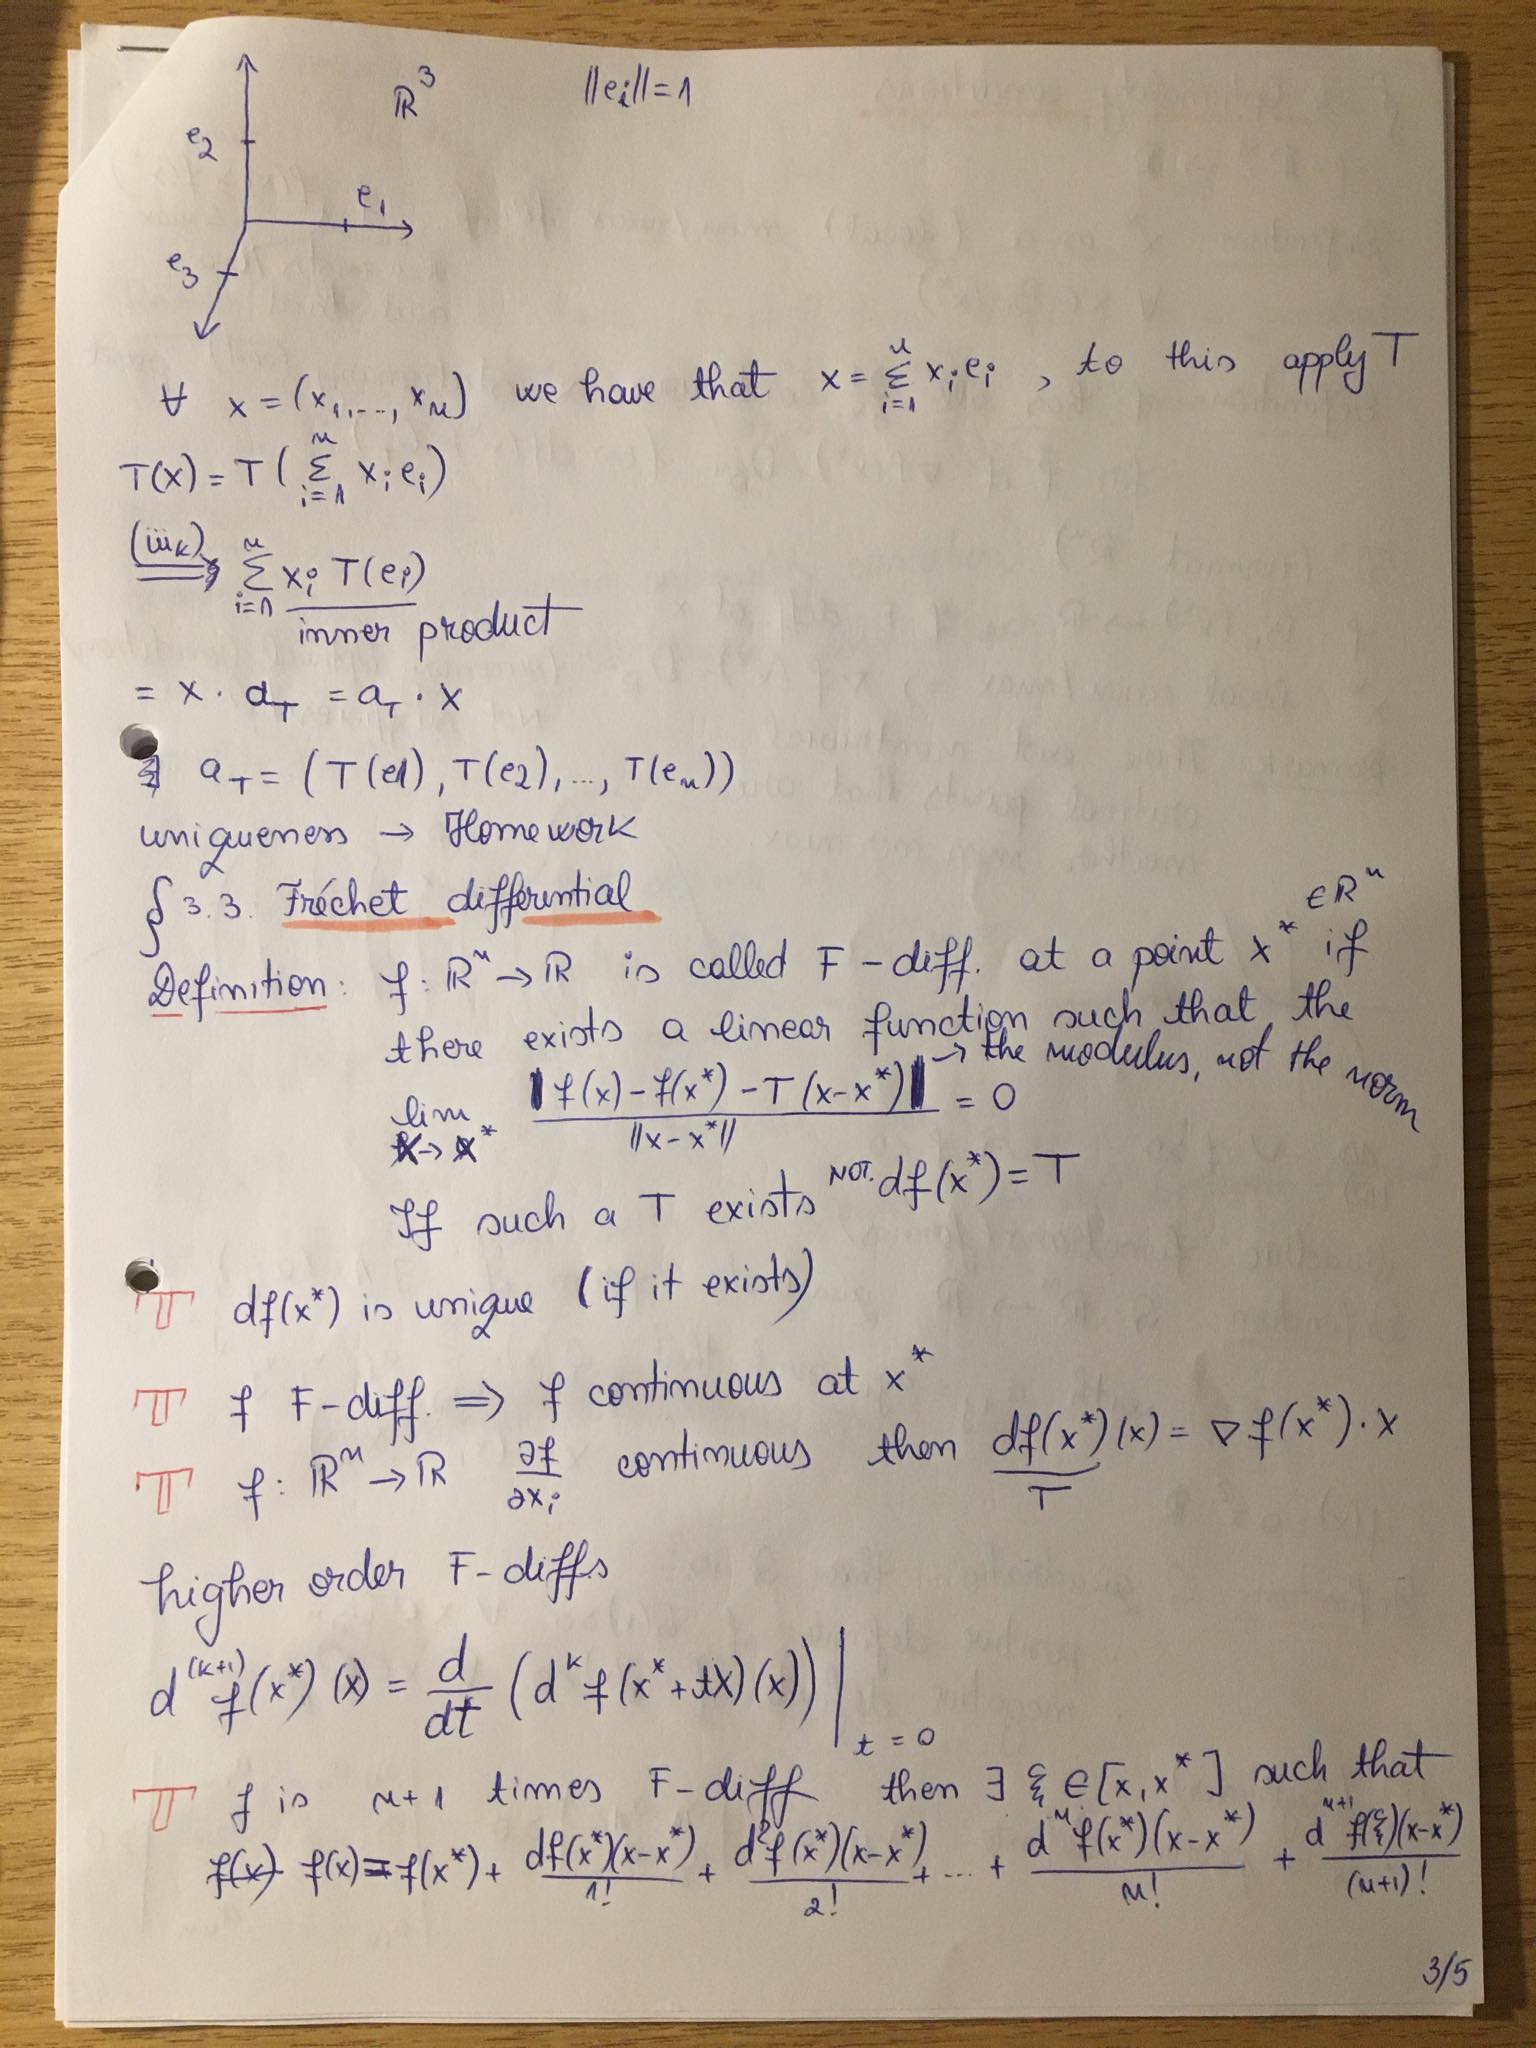 ℝ³ ||eᵢ|| = 1
e₂
e₁
e₃
∀ x = (x₁, ..., xₙ) we have that x = Σᵢ₌₁ⁿ xᵢeᵢ , to this apply T
T(x) = T( Σᵢ₌₁ⁿ xᵢeᵢ)
(iiiₖ) ⟹ Σᵢ₌₁ⁿ xᵢ T(eᵢ)
inner product
= x · a_T = a_T · x
a_T = (T(e1), T(e2), ..., T(eₙ))
uniqueness → Homework
§ 3.3. Fréchet differential
Definition: f: ℝⁿ → ℝ is called F-diff. at a point x* ∈ ℝⁿ if
there exists a linear function such that the
lim x→x* |f(x) - f(x*) - T(x-x*)| / ||x-x*|| = 0 → the modulus, not the norm
If such a T exists NOT. df(x*) = T
T df(x*) is unique (if it exists)
T f F-diff. ⟹ f continuous at x*
T f: ℝⁿ → ℝ ∂f/∂xᵢ continuous then df(x*)(x) = ∇f(x*)·x
T
higher order F-diffs
d⁽ᵏ⁺¹⁾f(x*)(x) = d/dt (dᵏf(x*+tx)(x)) |ₜ₌₀
T f is n+1 times F-diff then ∃ ξ ∈ [x, x*] such that
f(x) f(x) = f(x*) + df(x*)(x-x*)/1! + d²f(x*)(x-x*)/2! + ... + dⁿf(x*)(x-x*)/n! + dⁿ⁺¹f(ξ)(x-x*)/(n+1)!
3/5